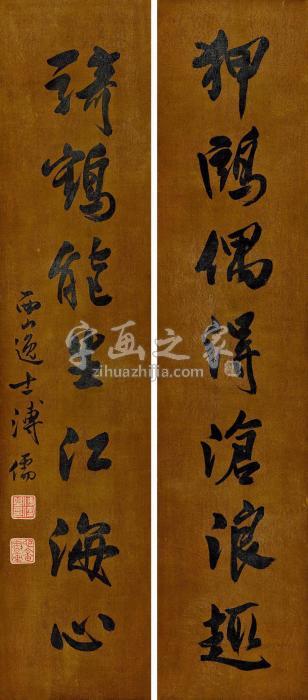 狎鷗偶得滄浪趣
騎鶴能江海心
西山逸士溥儒
字画之家
zihuazhijia.com